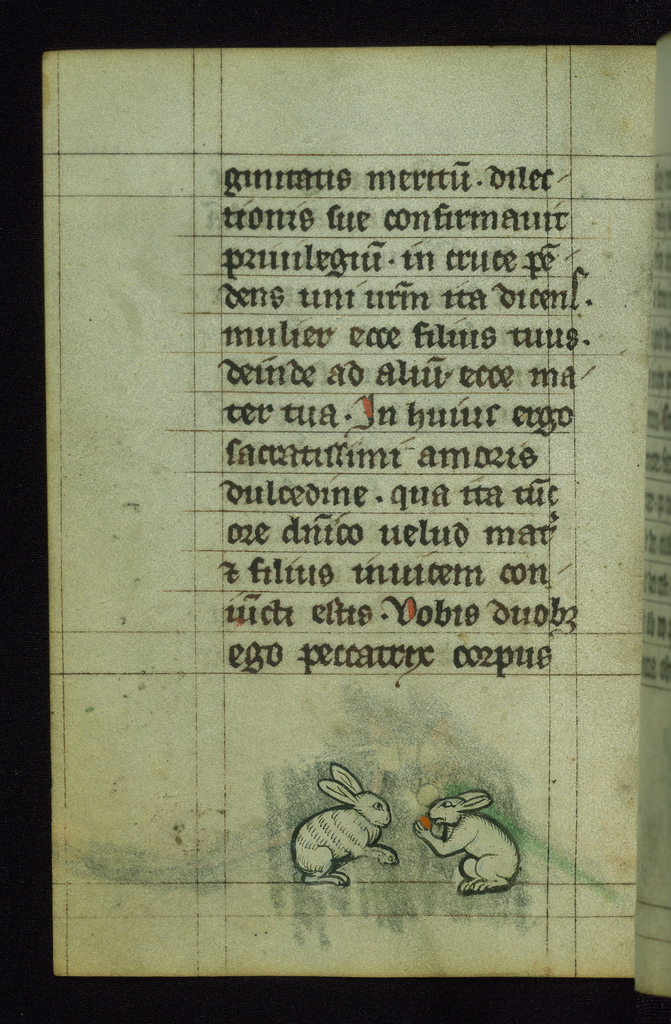 ginitatis meritū. dilec
tionis sue confirmauit
priuilegiū. in cruce pē
dens uni urm̄ ita dicens.
mulier ecce filius tuus.
deinde ad aliū ecce ma
ter tua. In huius ergo
sacratissimi amoris
dulcedine. qua ita tūc
ore dn̄ico uelud mat᷑
⁊ filius inuicem con
iūcti estis. Vobis duobꝫ
ego peccatrix corpus